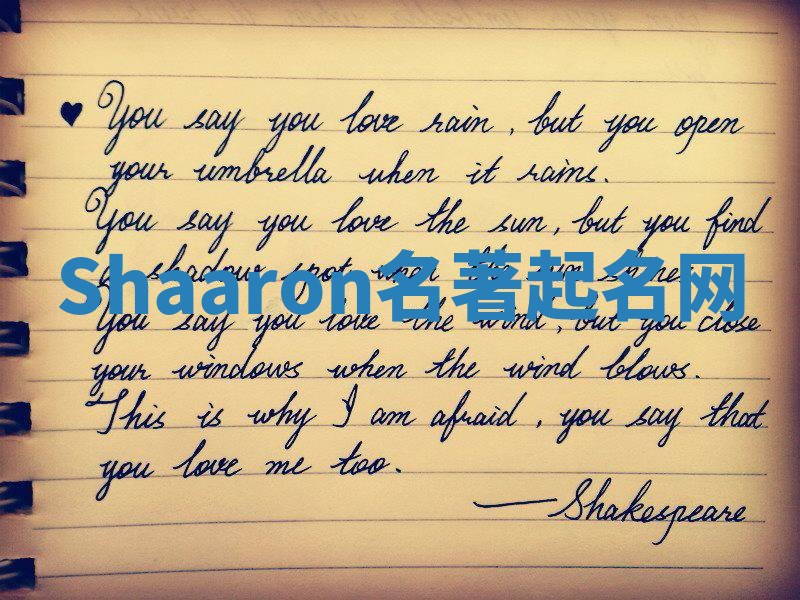 ♥ You say you love rain, but you open
your umbrella when it rains.
You say you love the sun, but you find
a shadow spot when the sun shines.
Shaaron名著起名网
You say you love the wind, but you close
your windows when the wind blows.
This is why I am afraid, you say that
you love me too.
— Shakespeare